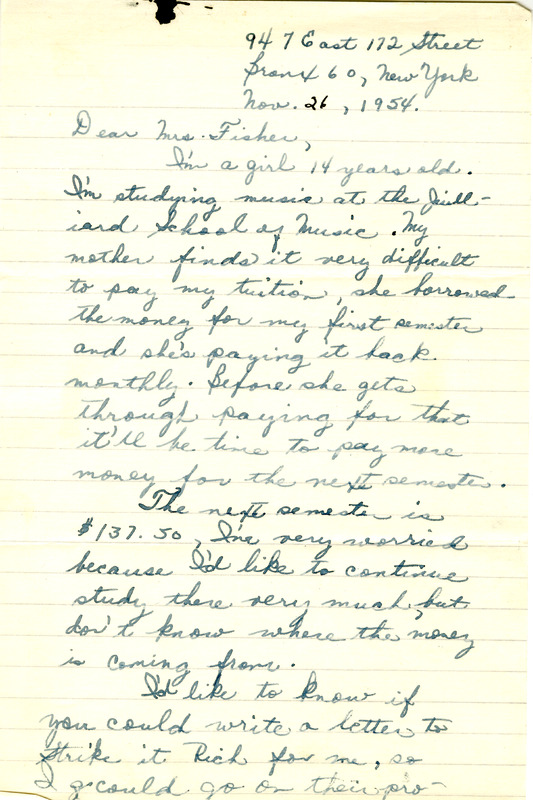 947 East 172 Street
Bronx 60, New York
Nov. 26, 1954.
Dear Mrs. Fisher,
I'm a girl 14 years old.
I'm studying music at the Juill-
iard School of Music. My
mother finds it very difficult
to pay my tuition, she borrowed
the money for my first semester
and she's paying it back
monthly. Before she gets
through paying for that
it'll be time to pay more
money for the next semester.
The next semester is
$137.50, I'm very worried
because I'd like to continue
study there very much, but
don't know where the money
is coming from.
I'd like to know if
you could write a letter to
Strike it Rich for me, so
I could go on their pro-